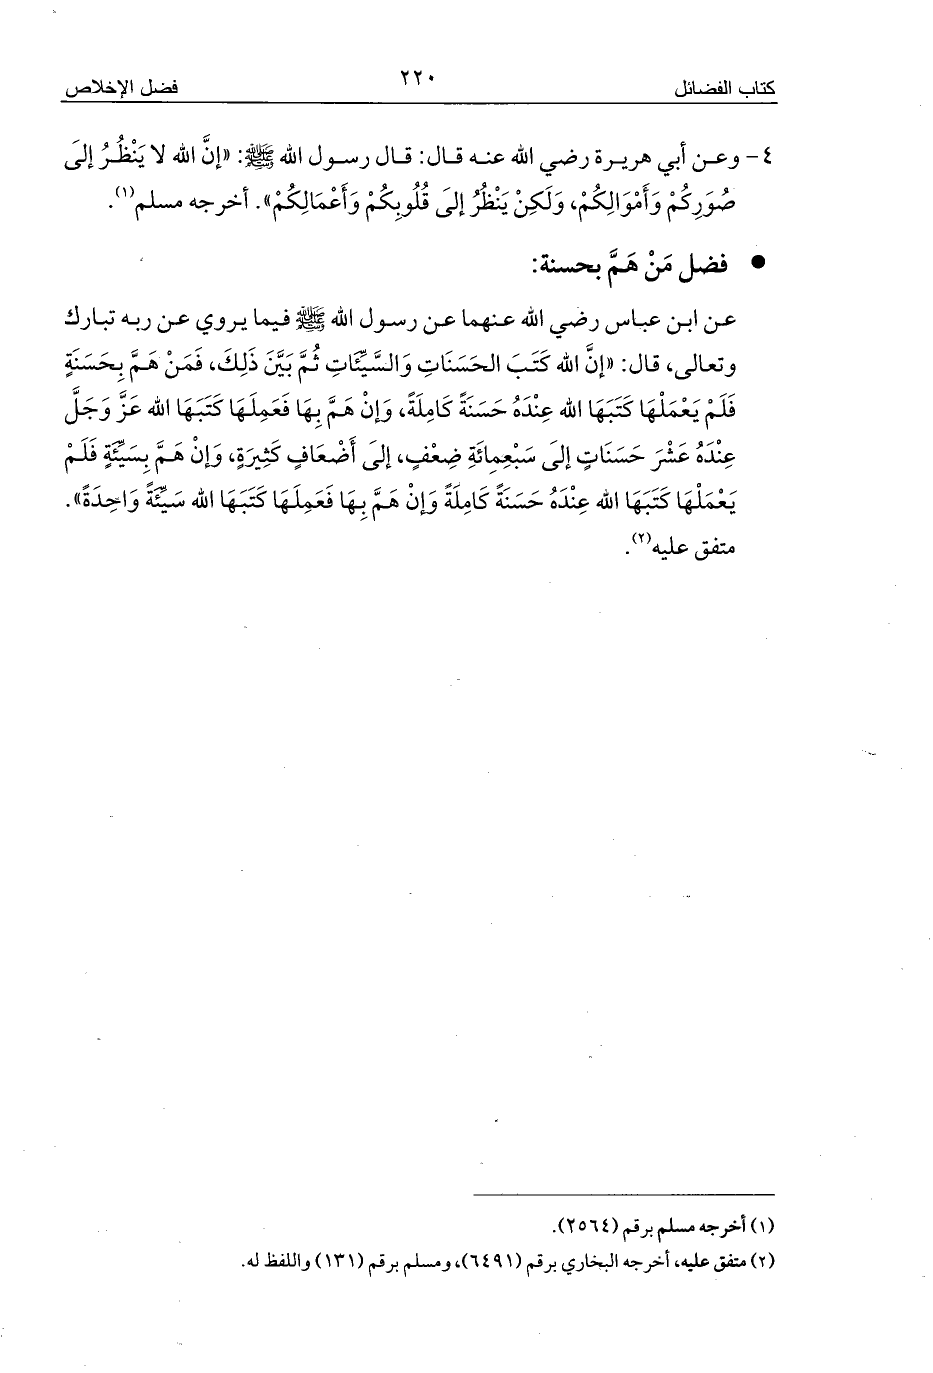 كتاب الفضائل
٢٢٠
فضل الإخلاص
٤- وعن أبي هريرة رضي الله عنه قال: قال رسول الله ﷺ: «إنَّ الله لا يَنْظُرُ إلَى
صُوَرِكُمْ وَأَمْوَالِكُمْ، وَلَكِنْ يَنْظُرُ إلَى قُلُوبِكُمْ وَأَعْمَالِكُمْ». أخرجه مسلم(١).
● فضل مَنْ هَمَّ بحسنة:
عن ابن عباس رضي الله عنهما عن رسول الله ﷺ فيما يروي عن ربه تبارك
وتعالى، قال: «إنَّ الله كَتَبَ الحَسَنَاتِ وَالسَّيِّئَاتِ ثُمَّ بَيَّنَ ذَلِكَ، فَمَنْ هَمَّ بِحَسَنَةٍ
فَلَمْ يَعْمَلْهَا كَتَبَهَا الله عِنْدَهُ حَسَنَةً كَامِلَةً، وَإنْ هَمَّ بِهَا فَعَمِلَهَا كَتَبَهَا الله عَزَّ وَجَلَّ
عِنْدَهُ عَشْرَ حَسَنَاتٍ إلَى سَبْعِمِائَةِ ضِعْفٍ، إلَى أَضْعَافٍ كَثِيرَةٍ، وَإنْ هَمَّ بِسَيِّئَةٍ فَلَمْ
يَعْمَلْهَا كَتَبَهَا الله عِنْدَهُ حَسَنَةً كَامِلَةً وَإنْ هَمَّ بِهَا فَعَمِلَهَا كَتَبَهَا الله سَيِّئَةً وَاحِدَةً».
متفق عليه(٢).
(١) أخرجه مسلم برقم (٢٥٦٤).
(٢) متفق عليه، أخرجه البخاري برقم (٦٤٩١)، ومسلم برقم (١٣١) واللفظ له.